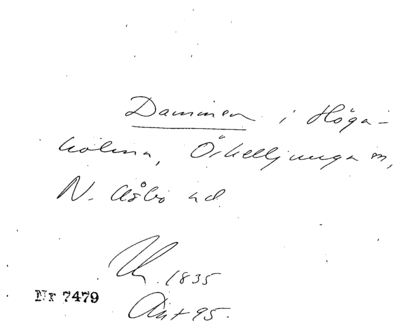 Dammen i Höga-
holma, Örkelljunga sn,
N. Åsbo hd
Lh. 1835
Nr 7479
Ant 95.